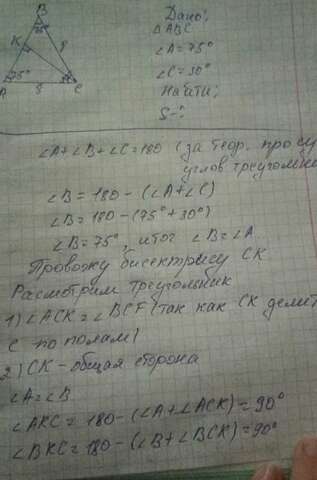 B
Дано:
ΔABC
∠A=75°
∠C=30°
Найти:
S-?
75°
K
8
A
75°
8
C
∠A+∠B+∠C=180 (за теор. про су
углов треугольни
∠B = 180-(∠A+∠C)
∠B = 180-(75°+30°)
∠B = 75°, итог ∠B=∠A
Провожу бисектрису CK
Расмотрим треугольник
1) ∠ACK = ∠BCF (так как CK делит
C по полам)
2) CK - общая сторона
∠A=∠B
∠AKC = 180-(∠A+∠ACK)=90°
∠BKC=180-(∠B+∠BCK)=90°